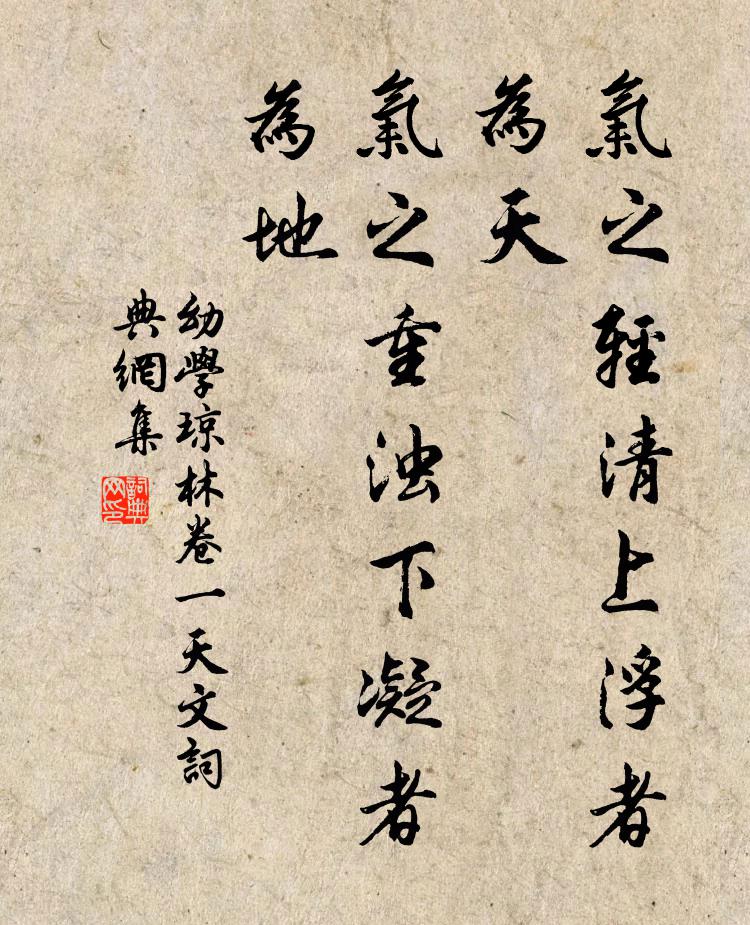 氣之輕清上浮者
為天
氣之重浊下凝者
為地
幼學琼林卷一天文詞
典網集
詞典
网印